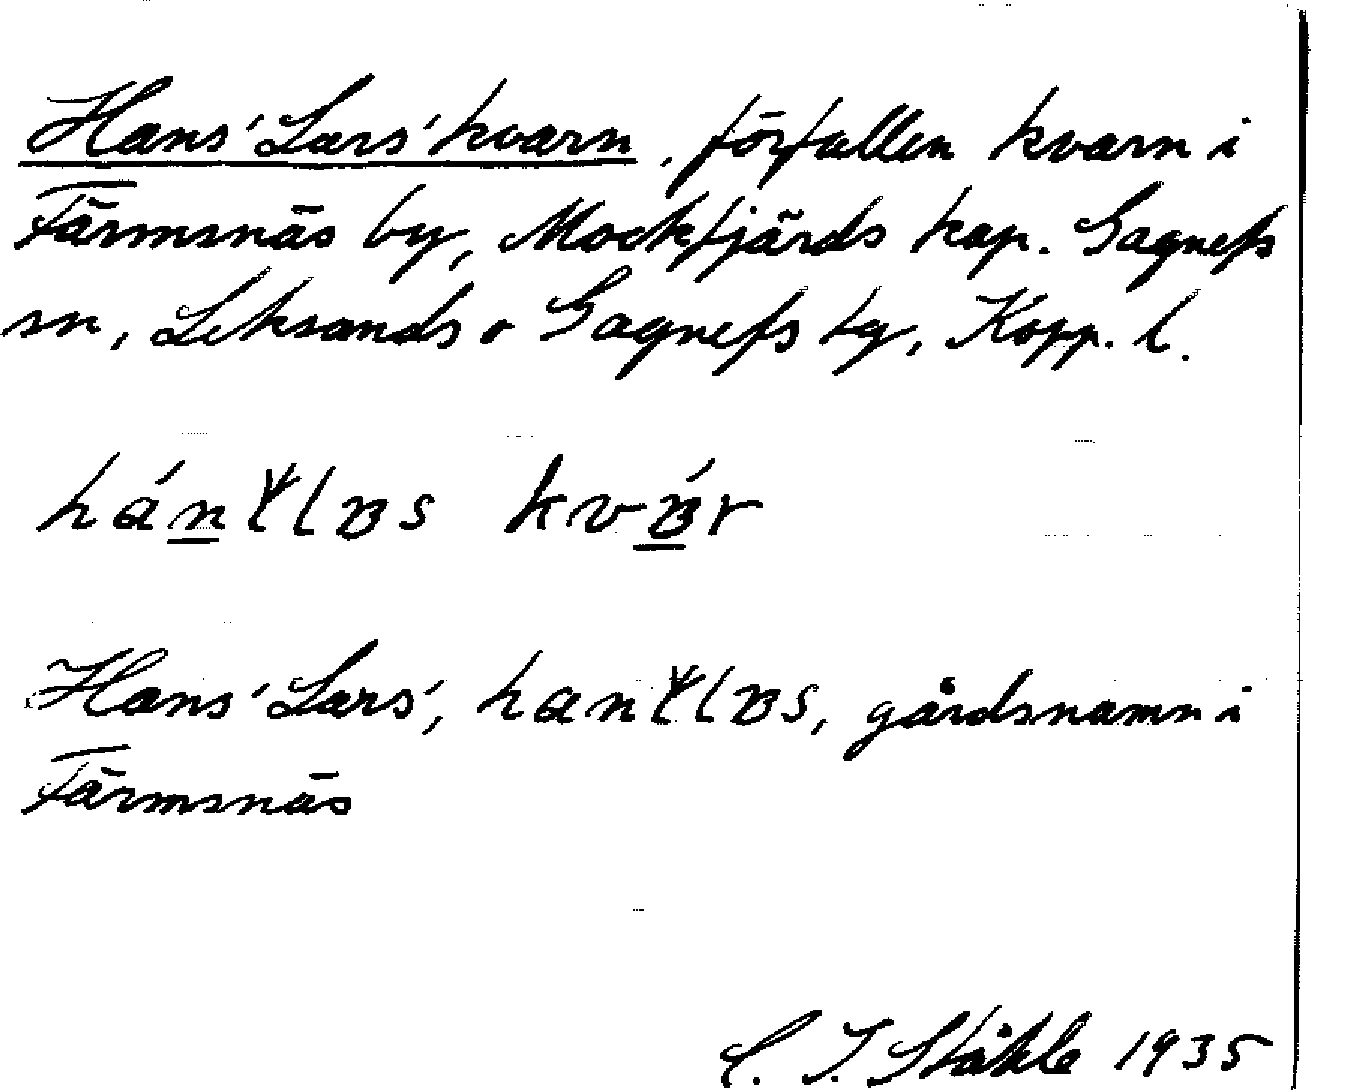 Hans' Lars' kvarn, förfallen kvarn i
Färmsnäs by, Mockfjärds kap. Gagnefs
sn, Leksands o Gagnefs tg, Kopp. l.
Hans' Lars', gårdsnamn i
Färmsnäs
C. I. Ståhle 1935